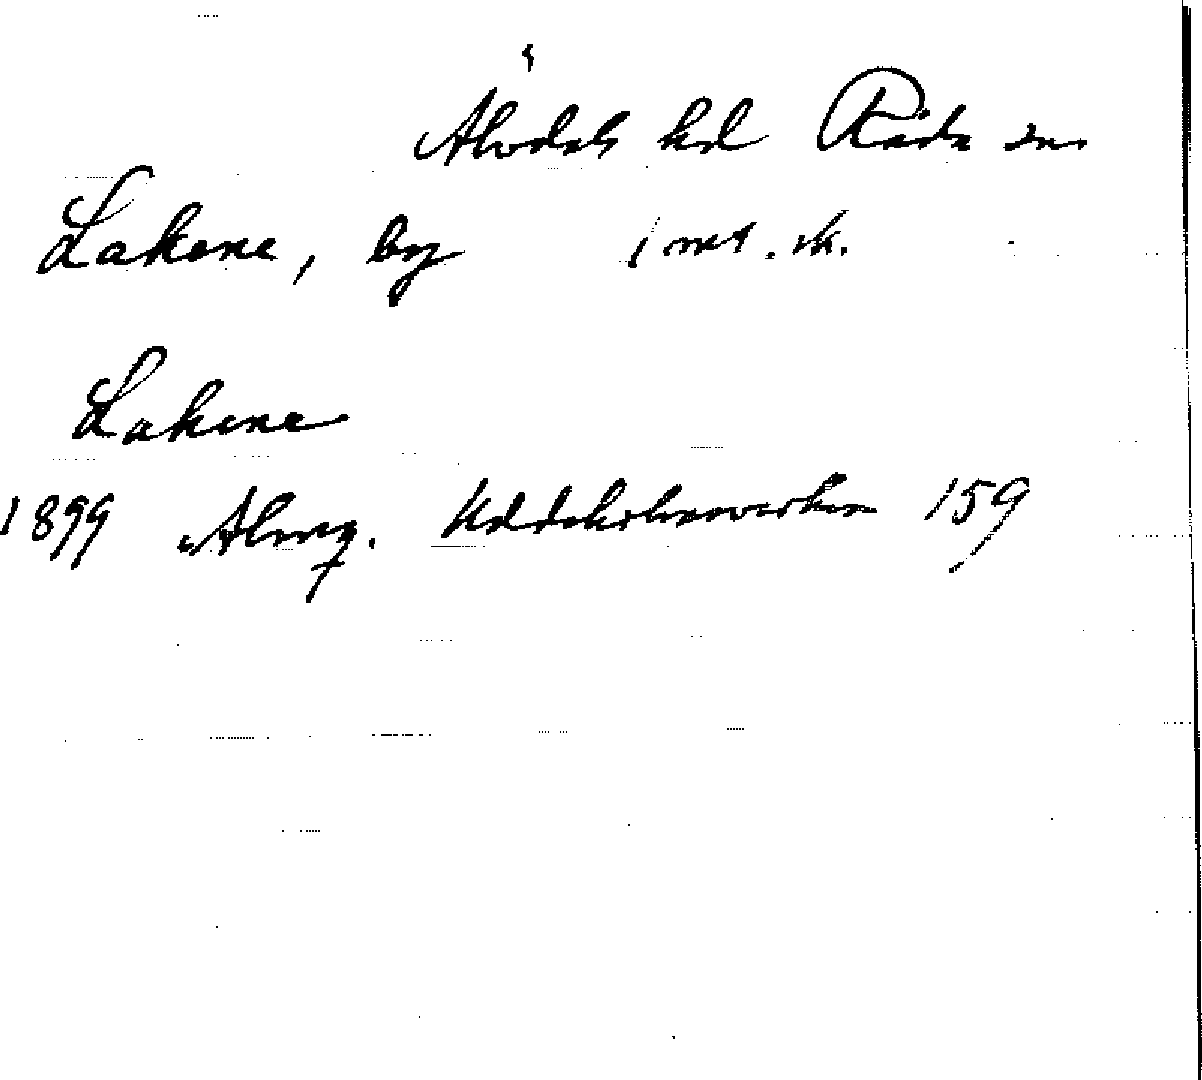 Älvdals hd Råda sn
Lakene, by 1 mt. sk.
Lakene
1899 Almq. Uddeholmsverken 159